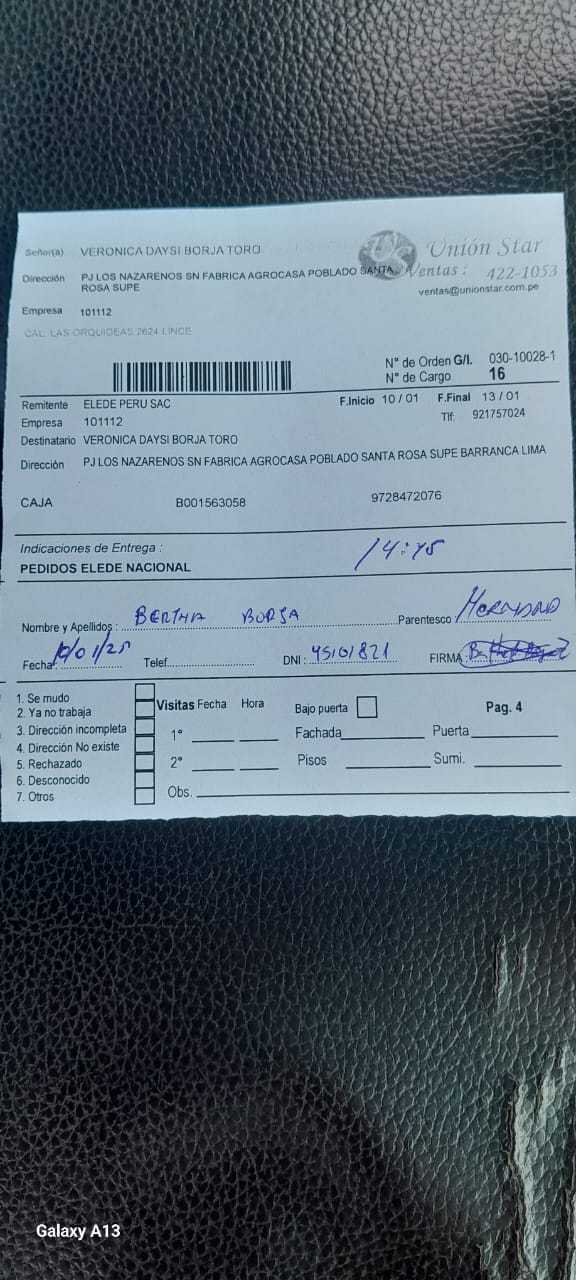 Señor(a) VERONICA DAYSI BORJA TORO
Unión Star
Dirección PJ LOS NAZARENOS SN FABRICA AGROCASA POBLADO SANTA
ROSA SUPE
Ventas : 422-1053
ventas@unionstar.com.pe
Empresa 101112
CAL. LAS ORQUIDEAS 2624 LINCE
N° de Orden G/I. 030-10028-1
N° de Cargo 16
Remitente ELEDE PERU SAC F.Inicio 10 / 01 F.Final 13 / 01
Empresa 101112 Tlf: 921757024
Destinatario VERONICA DAYSI BORJA TORO
Dirección PJ LOS NAZARENOS SN FABRICA AGROCASA POBLADO SANTA ROSA SUPE BARRANCA LIMA
CAJA B001563058 9728472076
Indicaciones de Entrega : 14:45
PEDIDOS ELEDE NACIONAL
Nombre y Apellidos : BERTHA BORJA Parentesco
Fecha: 10/01/25 Telef. DNI : 45101821 FIRMA
1. Se mudo
2. Ya no trabaja
3. Dirección incompleta
4. Dirección No existe
5. Rechazado
6. Desconocido
7. Otros
Visitas Fecha Hora Bajo puerta Pag. 4
1° Fachada Puerta
2° Pisos Sumi.
Obs.
Galaxy A13